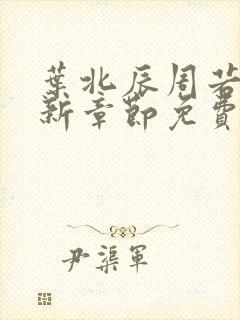 葉北辰周若
新章節免費
尹渠軍